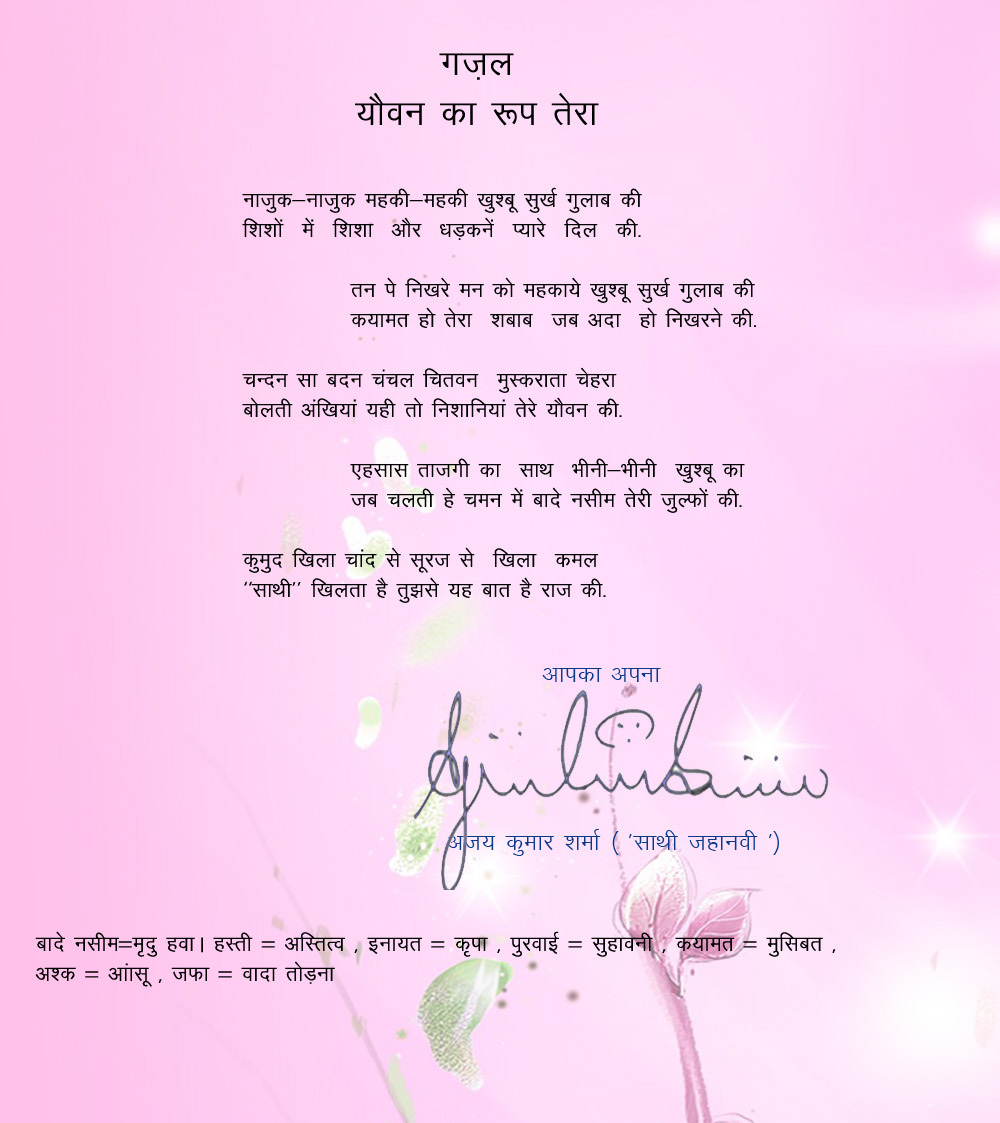 गज़ल
यौवन का रूप तेरा
नाजुक–नाजुक महकी–महकी खुश्बू सुर्ख गुलाब की
शिशों में शिशा और धड़कनें प्यारे दिल की.
तन पे निखरे मन को महकाये खुश्बू सुर्ख गुलाब की
कयामत हो तेरा शबाब जब अदा हो निखरने की.
चन्दन सा बदन चंचल चितवन मुस्कराता चेहरा
बोलती अंखियां यही तो निशानियां तेरे यौवन की.
एहसास ताजगी का साथ भीनी–भीनी खुश्बू का
जब चलती हे चमन में बादे नसीम तेरी जुल्फों की.
कुमुद खिला चांद से सूरज से खिला कमल
‘‘साथी’’ खिलता है तुझसे यह बात है राज की.
आपका अपना
अजय कुमार शर्मा ( ’साथी जहानवी ’)
बादे नसीम=मृदु हवा। हस्ती = अस्तित्व , इनायत = कृपा , पुरवाई = सुहावनी , कयामत = मुसिबत ,
अश्क = आंासू , जफा = वादा तोड़ना